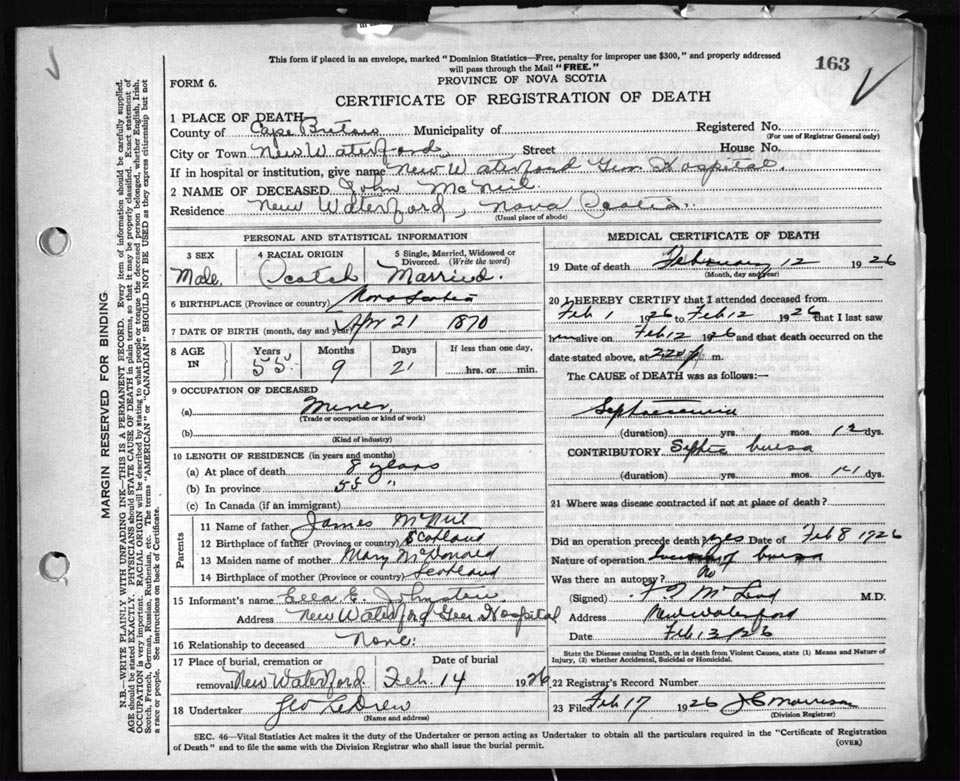 This form if placed in an envelope, marked "Dominion Statistics—Free, penalty for improper use $300," and properly addressed
will pass through the Mail "FREE."
163
FORM 6.
PROVINCE OF NOVA SCOTIA
CERTIFICATE OF REGISTRATION OF DEATH
1 PLACE OF DEATH
County of Cape Breton Municipality of Registered No.
(For use of Registrar General only)
City or Town New Waterford, Street House No.
If in hospital or institution, give name New Waterford Gen Hospital.
2 NAME OF DECEASED John McNeil.
Residence New Waterford, Nova Scotia.
(Usual place of abode)
PERSONAL AND STATISTICAL INFORMATION
3 SEX 4 RACIAL ORIGIN 5 Single, Married, Widowed or
Divorced. (Write the word)
Male. Scotch Married.
6 BIRTHPLACE (Province or country) Nova Scotia
7 DATE OF BIRTH (month, day and year) Apr 21 1870
8 AGE IN Years Months Days If less than one day,
55 9 21 hrs. or min.
9 OCCUPATION OF DECEASED
(a) Miner,
(Trade or occupation or kind of work)
(b)
(Kind of industry)
10 LENGTH OF RESIDENCE (in years and months)
(a) At place of death 8 years
(b) In province 55 "
(c) In Canada (if an immigrant)
Parents
11 Name of father James McNeil
12 Birthplace of father (Province or country) Scotland
13 Maiden name of mother Mary McDonald
14 Birthplace of mother (Province or country) Scotland
15 Informant's name Ella E. Johnston
Address New Waterford Gen Hospital
16 Relationship to deceased None.
17 Place of burial, cremation or Date of burial
removal New Waterford. Feb. 14 1926
18 Undertaker Geo LeDrew
(Name and address)
MEDICAL CERTIFICATE OF DEATH
19 Date of death February 12 1926
(Month, day and year)
20 I HEREBY CERTIFY that I attended deceased from
Feb 1 1926 to Feb 12 1926 that I last saw
him alive on Feb 12 1926 and that death occurred on the
date stated above, at 220 p m.
The CAUSE of DEATH was as follows:—
Septicaemia
(duration) yrs. mos. 12 dys.
CONTRIBUTORY Septic bursa
(duration) yrs. mos. 14 dys.
21 Where was disease contracted if not at place of death?
Did an operation precede death? yes Date of Feb 8 1926
Nature of operation of bursa
Was there an autopsy? No
(Signed) McLeod M.D.
Address New Waterford
Date Feb 13/26
State the Disease causing Death, or in death from Violent Causes, state (1) Means and Nature of
Injury, (2) whether Accidental, Suicidal or Homicidal.
22 Registrar's Record Number
23 Filed Feb 17 1926 J C Morrison
(Division Registrar)
SEC. 46—Vital Statistics Act makes it the duty of the Undertaker or person acting as Undertaker to obtain all the particulars required in the "Certificate of Registration
of Death" and to file the same with the Division Registrar who shall issue the burial permit. (OVER)
MARGIN RESERVED FOR BINDING
N.B.—WRITE PLAINLY WITH UNFADING INK—THIS IS A PERMANENT RECORD. Every item of information should be carefully supplied.
AGE should be stated EXACTLY. PHYSICIANS should STATE CAUSE OF DEATH in plain terms, so that it may be properly classified. Exact statement of
OCCUPATION is very important. RACIAL ORIGIN will be described by stating to what people or tongue the deceased person belonged, whether English, Irish,
Scotch, French, German, Russian, Ruthenian, etc. The terms "AMERICAN" or "CANADIAN" SHOULD NOT BE USED as they express citizenship but not
a race or people. See instructions on back of Certificate.